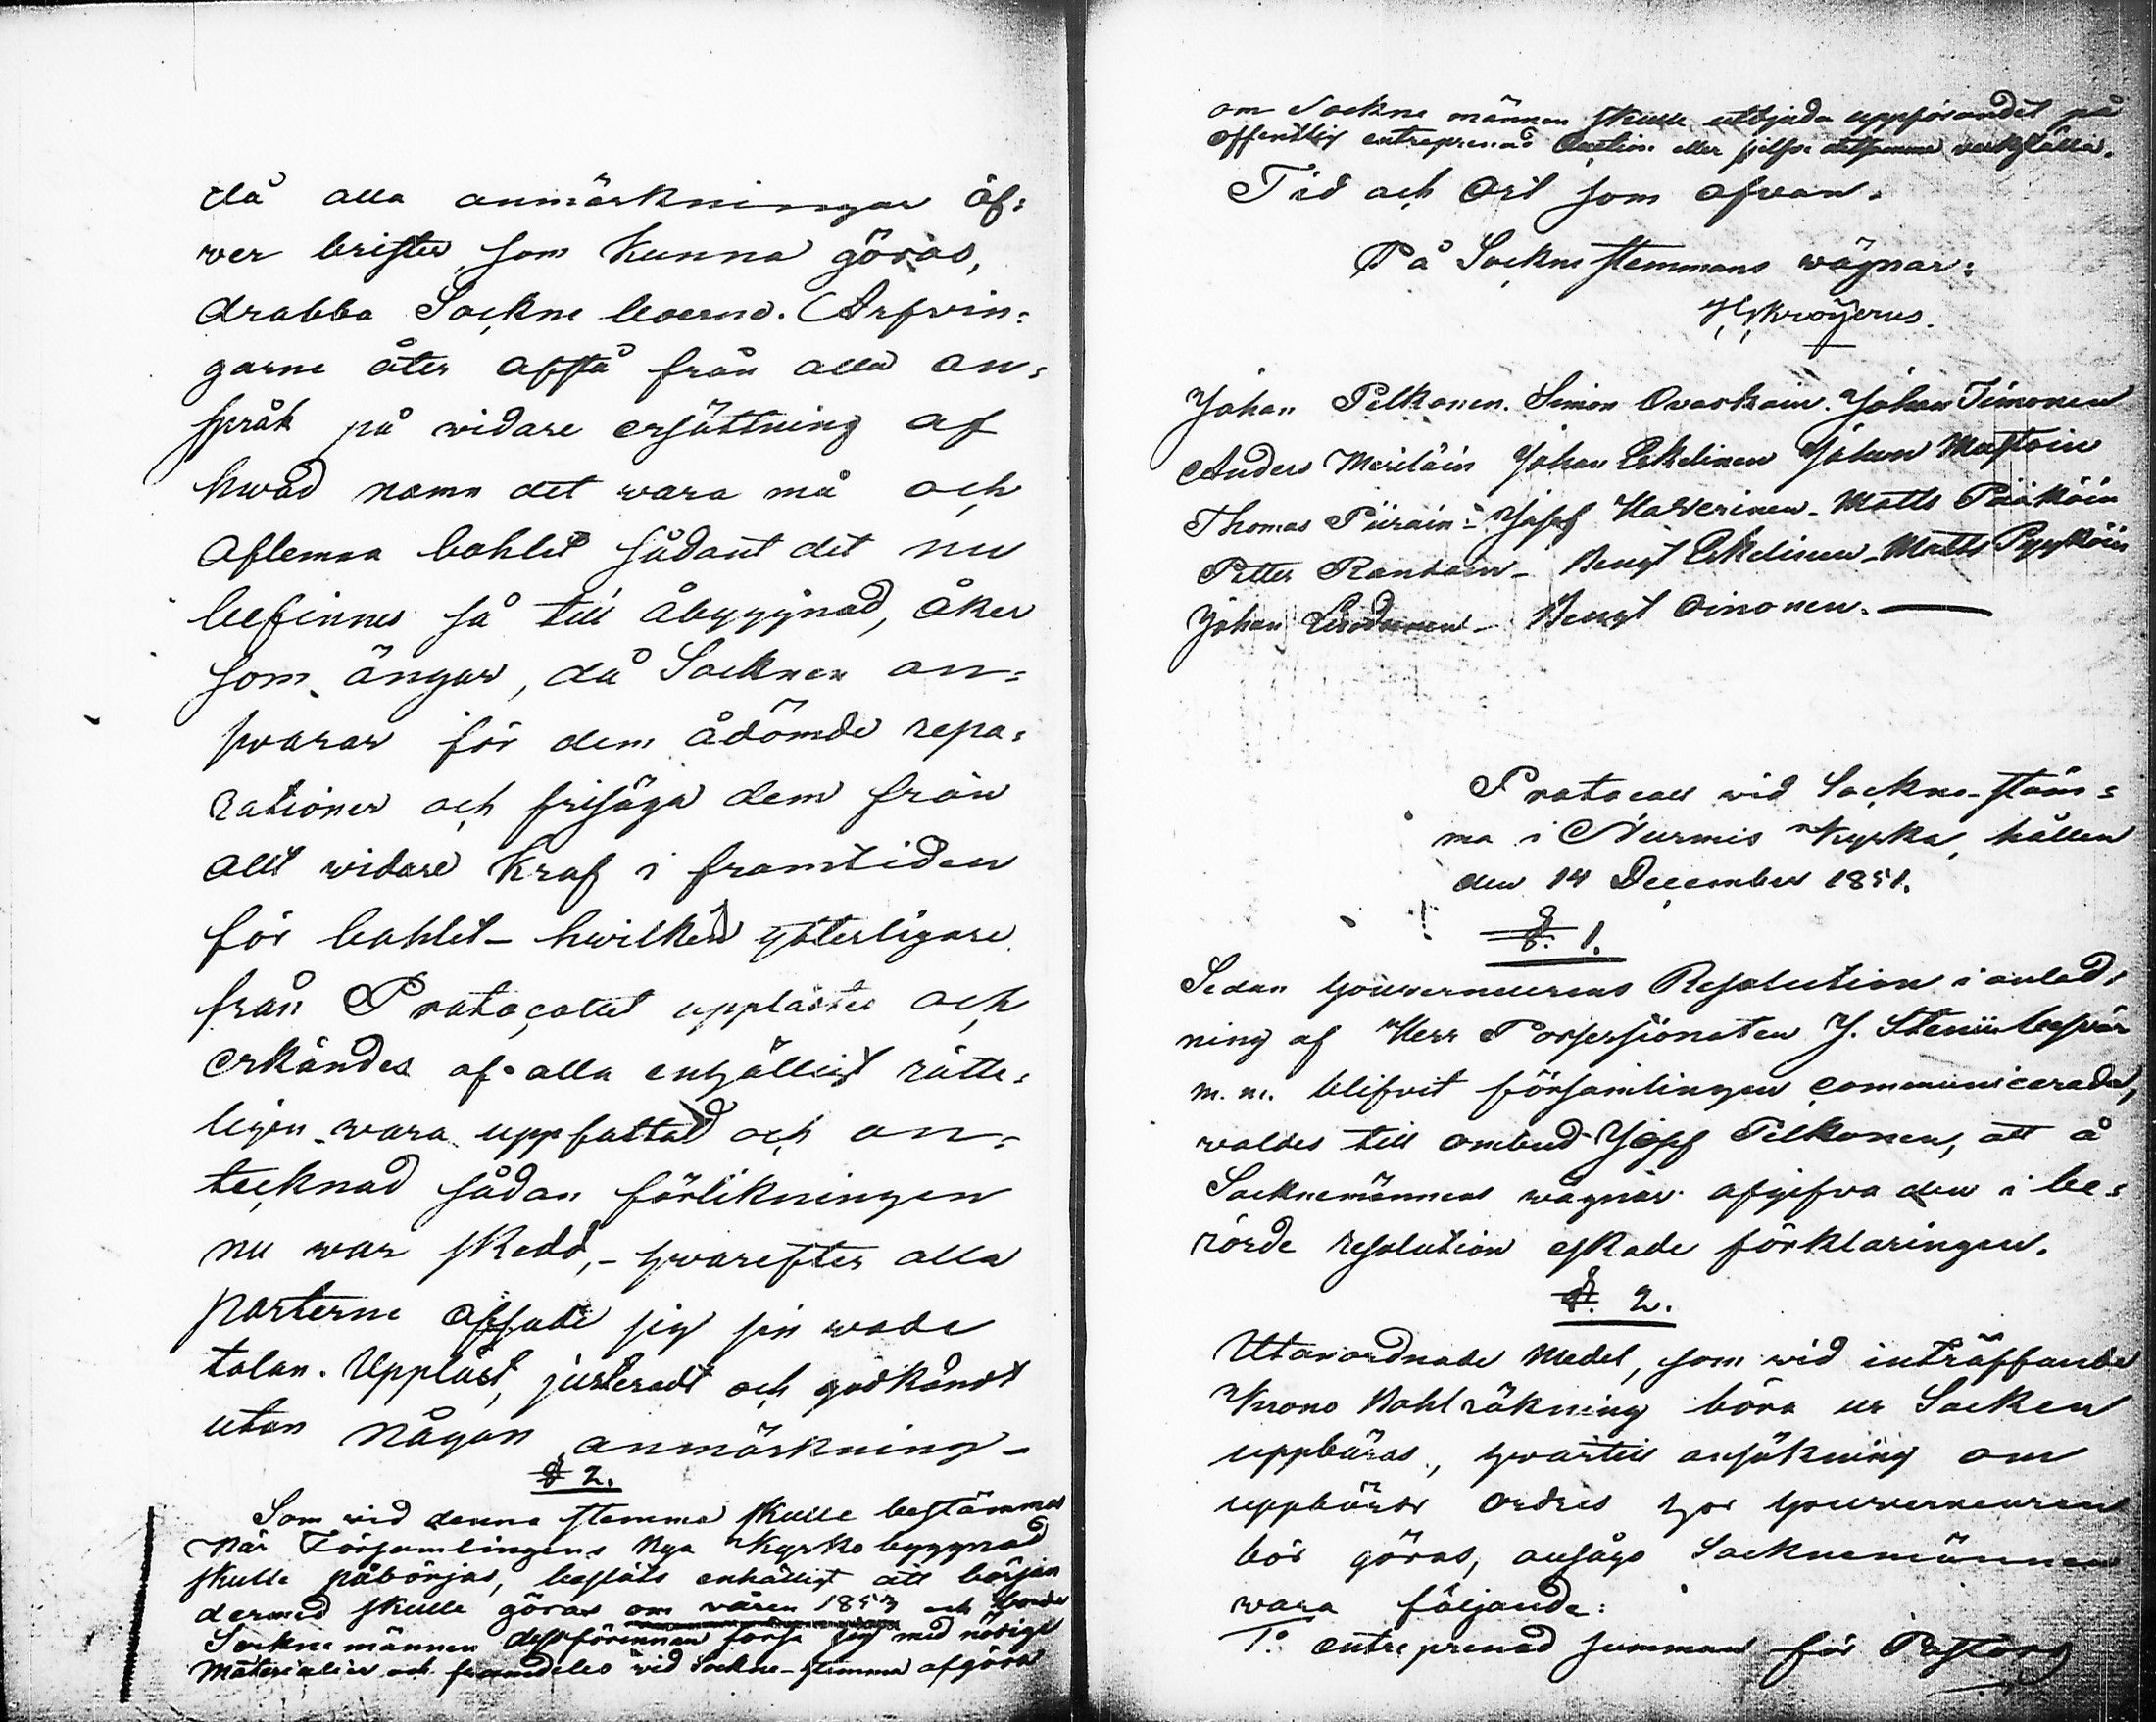 då alla anmärkningar öf=
ver brister, som kunna göras,
drabba Sockne boerne. Arfvin=
garne åter afstå från alla an=
språk på widare ersättning af
hwad namn det vara må och
aflemna bohlet sådant det nu
befinnes så till åbyggnad, åker
som ängar, då Socknen an=
svarar för dem ådömde repa=
rationer och frisäga dem från
allt widare kraf i framtiden
för bohlet – hwilken ytterligare
från Protocollet upplästes och
erkändes af alla enhälligt rätte=
ligen vara uppfattad och an=
tecknad sådan förlikningen
nu war skedd, – hvarefter alla
parterne afsade sig sin wade
talan. Uppläst, justeradt och godkändt
utan någon anmärkning –
§ 2.
Som vid denna stemma skulle bestämmas
när Församlingens Nya Kyrko byggnad
skulle påbörjas, beslöts enhälligt att början
dermed skulle göras om våren 1853 och borde
Sockne männen dessförinnan förse sig med nödige
Materialier och framdeles vid Sockne-stemma afgöra
om Sockne männen skulle utbjuda uppförandet på
offentlig entreprenad Auction eller sjelfve detsamma verkställa.
Tid och Ort som ofvan.
På Sockne stemmans wägnar:
H. Kroÿerus.
Johan Pelkonen. Simon Ovaskain. Johan Timonen
Anders Meriläin Johan Eskelinen Johan Mustoin
Thomas Piirain - Josef Haverinen - Matts Pääköin
Petter Rantain - Bengt Eskelinen - Matts Pyyköin
Johan - Bengt Oinonen. —
Protocoll vid Sockne-stäm=
ma i Nurmis Kyrka, hållen
den 14 December 1851.
§. 1.
Sedan Gouverneurens Resolution i anled=
ning af Herr Possessionaten J. Stenii besvär
m. m. blifvit församlingen communicerada,
valdes till ombud Josef Pelkonen, att å
Socknemännens wägnar afgifva den i be=
rörde resolution eskade förklaringen.
§. 2.
Utanordnade Medel, som vid inträffande
Krono Bohlräkning böra ur Socken
uppbäras, hvartill ansökning om
uppbörds ordres hos Gouverneuren
bör göras, ansågs Socknemännen
vara följande:
1:o entreprenad summan för Pastors